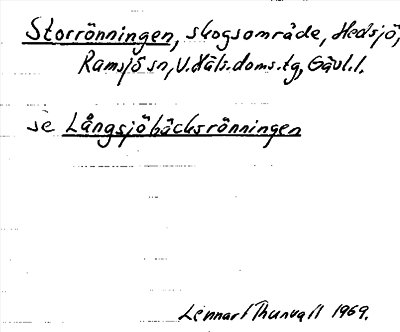 Storrönningen, skogsområde, Hedsjö,
Ramsjö sn, V. Häls. doms. tg, Gävl. l.
se Långsjöbäcksrönningen
Lennart Thunvall 1969.